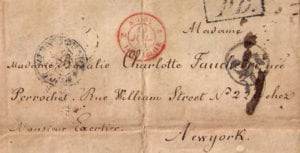 P.D.
Madame
Madame Rosalie Charlotte Fauche née
Perrochet, Rue William Street No 22 chez
Monsieur Exertier.
Newyork.